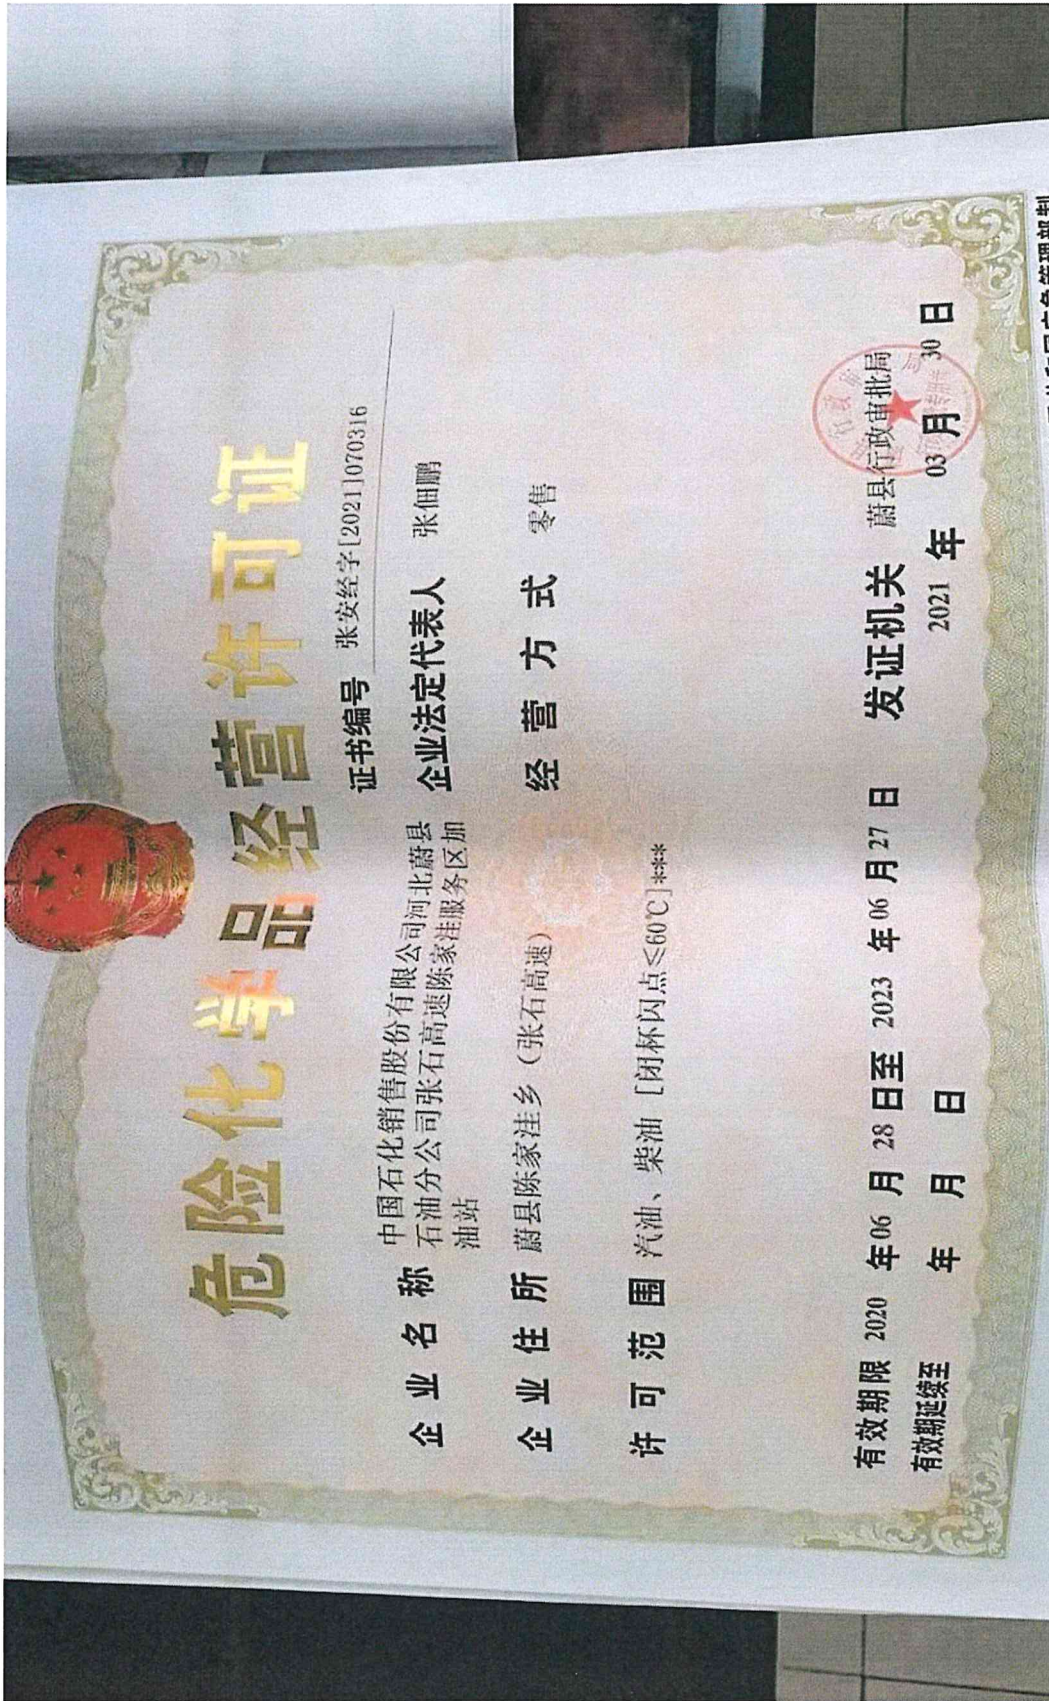 危险化学品经营许可证
证书编号 张安经字[2021]070316
企业名称 中国石化销售股份有限公司河北蔚县
石油分公司张石高速陈家洼服务区加
油站
企业法定代表人 张佃鹏
企业住所 蔚县陈家洼乡（张石高速）
经营方式 零售
许可范围 汽油、柴油［闭杯闪点≤60℃］***
有效期限 2020 年 06 月 28 日至 2023 年 06 月 27 日
发证机关 蔚县行政审批局
有效期延续至 年 月 日
2021 年 03 月 30 日
和国应急管理部制